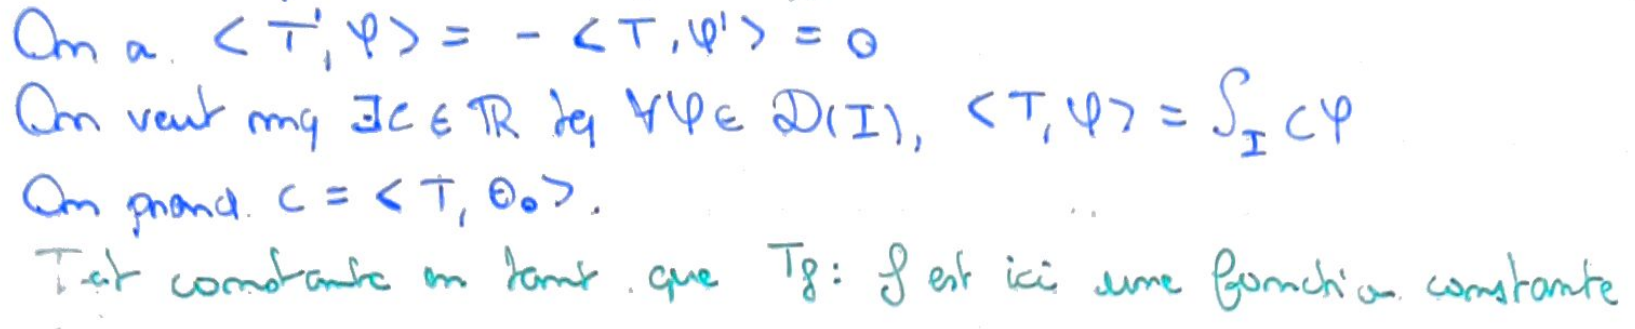 On a. < T', φ > = - < T, φ' > = 0
On veut mq ∃c ∈ ℝ tq ∀φ ∈ 𝒟(I), < T, φ > = ∫_I cφ
On prend. c = < T, θ₀ >.
T est constante en tant que T_f : f est ici une fonction constante